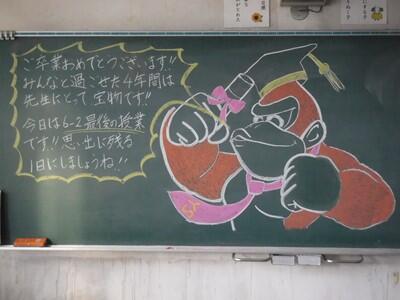 ご卒業おめでとうございます!!
みんなと過ごせた4年間は
先生にとって宝物です!!
今日は6-2最後の授業
です!!思い出に残る
1日にしましょうね!!